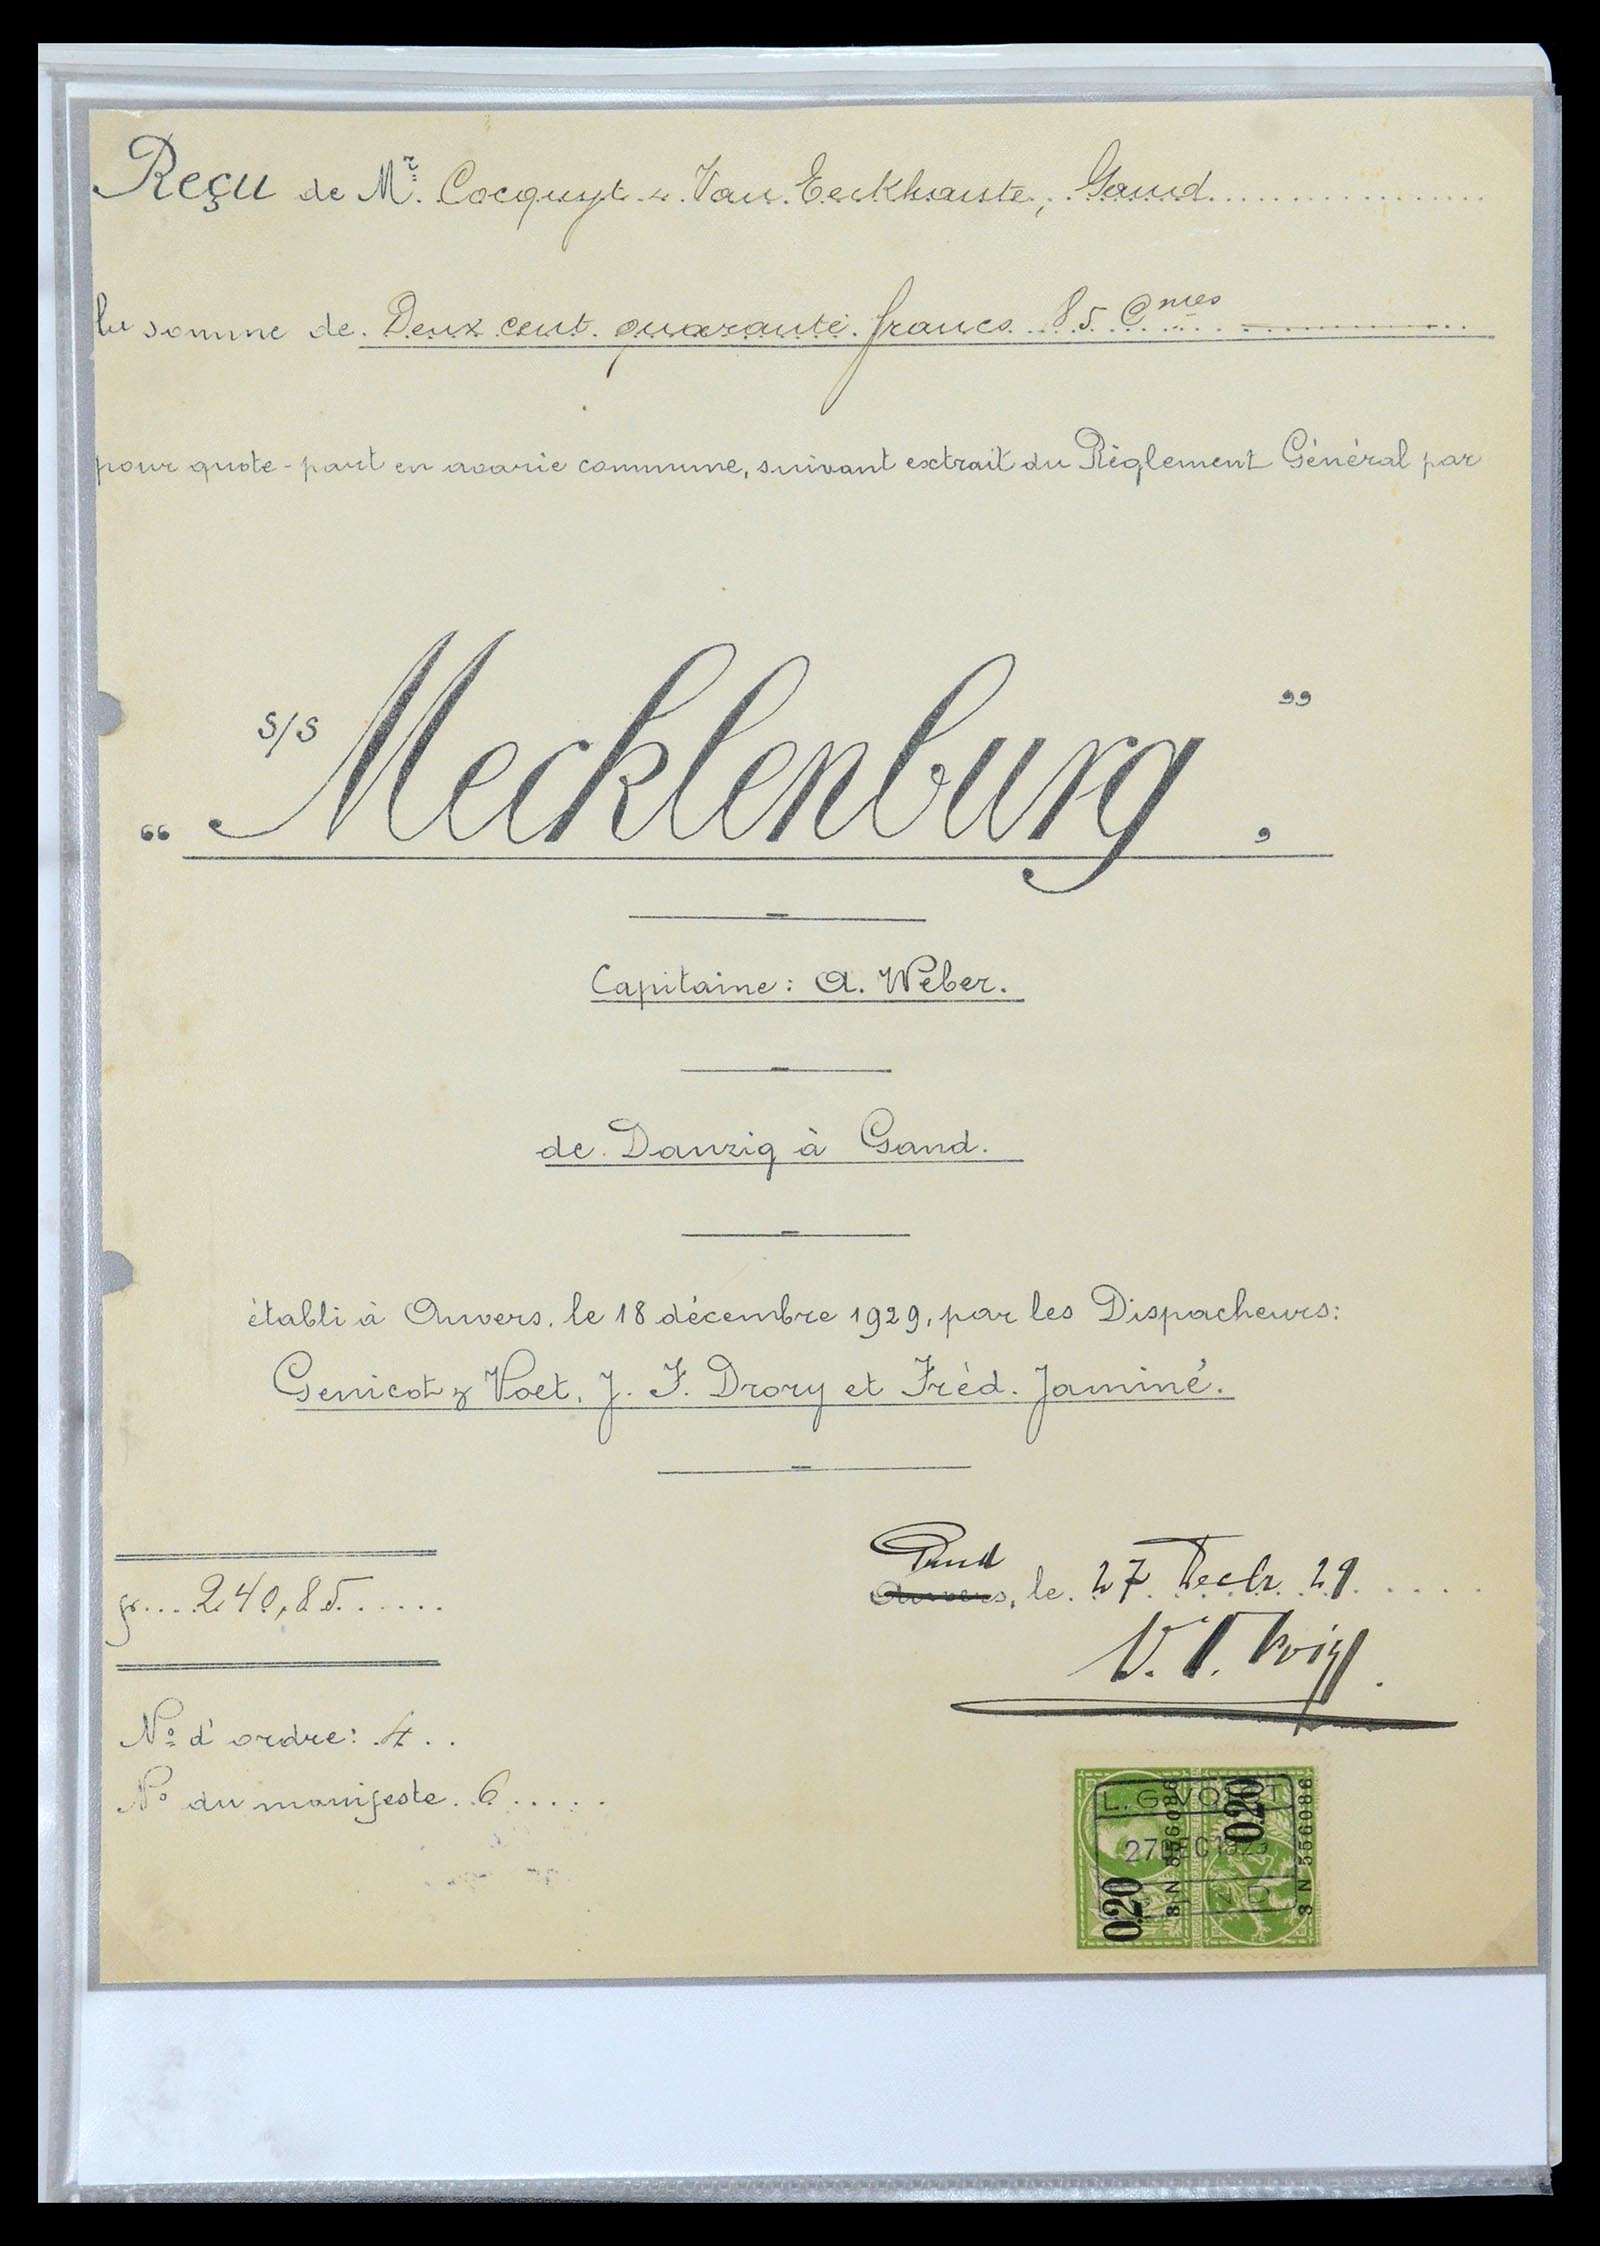 Reçu de Mr. Cocquyt & Van Eeckhaute, Gand
la somme de Deux cent quarante francs 85 Cmes
pour quote-part en avarie commune, suivant extrait du Règlement Général par
s/s
„ Mecklenburg ”,
Capitaine: A. Weber.
de Danzig à Gand.
établi à Anvers, le 18 décembre 1929, par les Dispacheurs:
Genicot & Voet, J. F. Drory et Fréd. Jaminé.
Gand
Anvers, le 27 Decbr 29
fr... 240,85
No d'ordre: 4
No du manifeste 6
L. G. VOIGT
27 DEC 1929
0.20
0.20
3 N 556086
3 N 556086